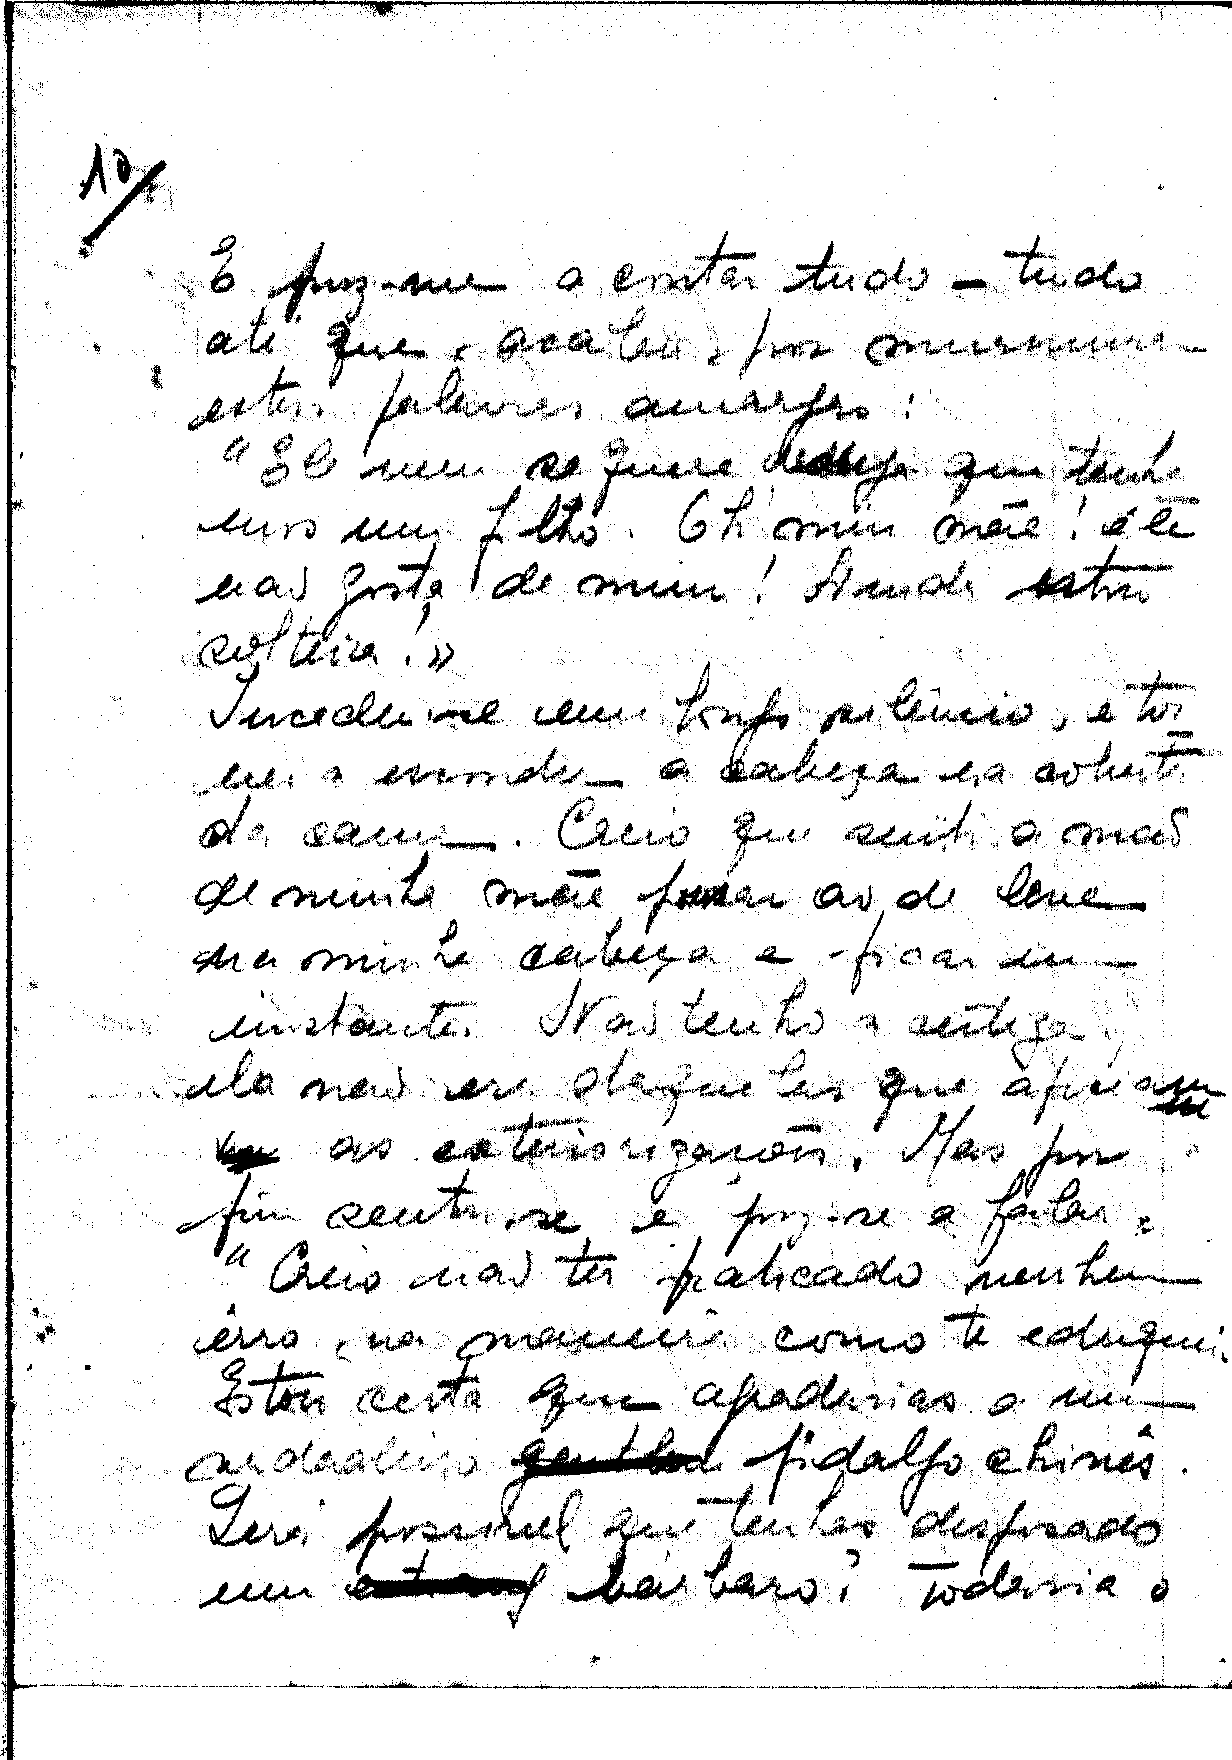 10/
E puz-me a contar tudo - tudo
até que, acabei por murmurar
estas palavras amargas:
"Ele nem sequer deseja que tenha
mos um filho. Oh minha mãe! êle
não gosta de mim! Ainda estou
solteira!»
Sucedeu-se um longo silêncio, e tor
nei a esconder a cabeça na coberta
da cama. Creio que senti a mão
de minha mãe pousar ao de leve
na minha cabeça e ficar um
instante. Não tenho a certeza.
ela não era daquelas que apreciam
as exteriorizações. Mas por
fim sentou-se e poz-se a falar:
"Creio não ter praticado nenhum
êrro, na maneira como te eduquei.
Estou certa que agradarias a um
verdadeiro fidalgo chinês.
Será possivel que tenhas desposado
um bárbaro? Todavia o